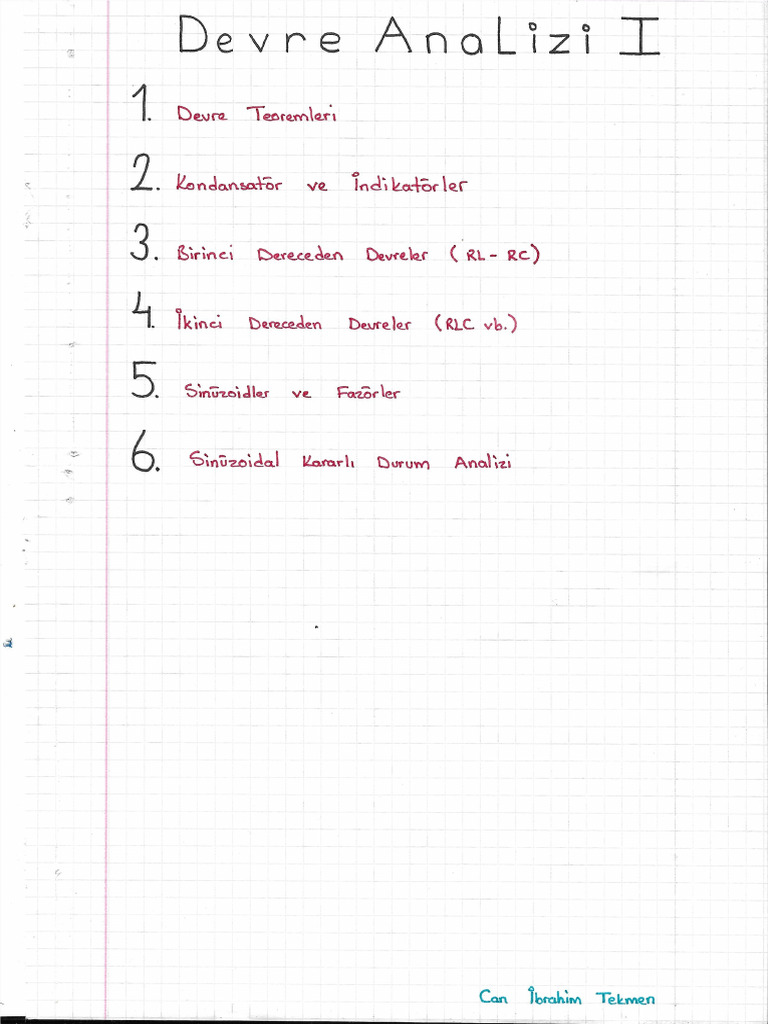 Devre Analizi I
1. Devre Teoremleri
2. Kondansatör ve İndikatörler
3. Birinci Dereceden Devreler (RL - RC)
4. İkinci Dereceden Devreler (RLC vb.)
5. Sinüzoidler ve Fazörler
6. Sinüzoidal Kararlı Durum Analizi
Can İbrahim Tekmen